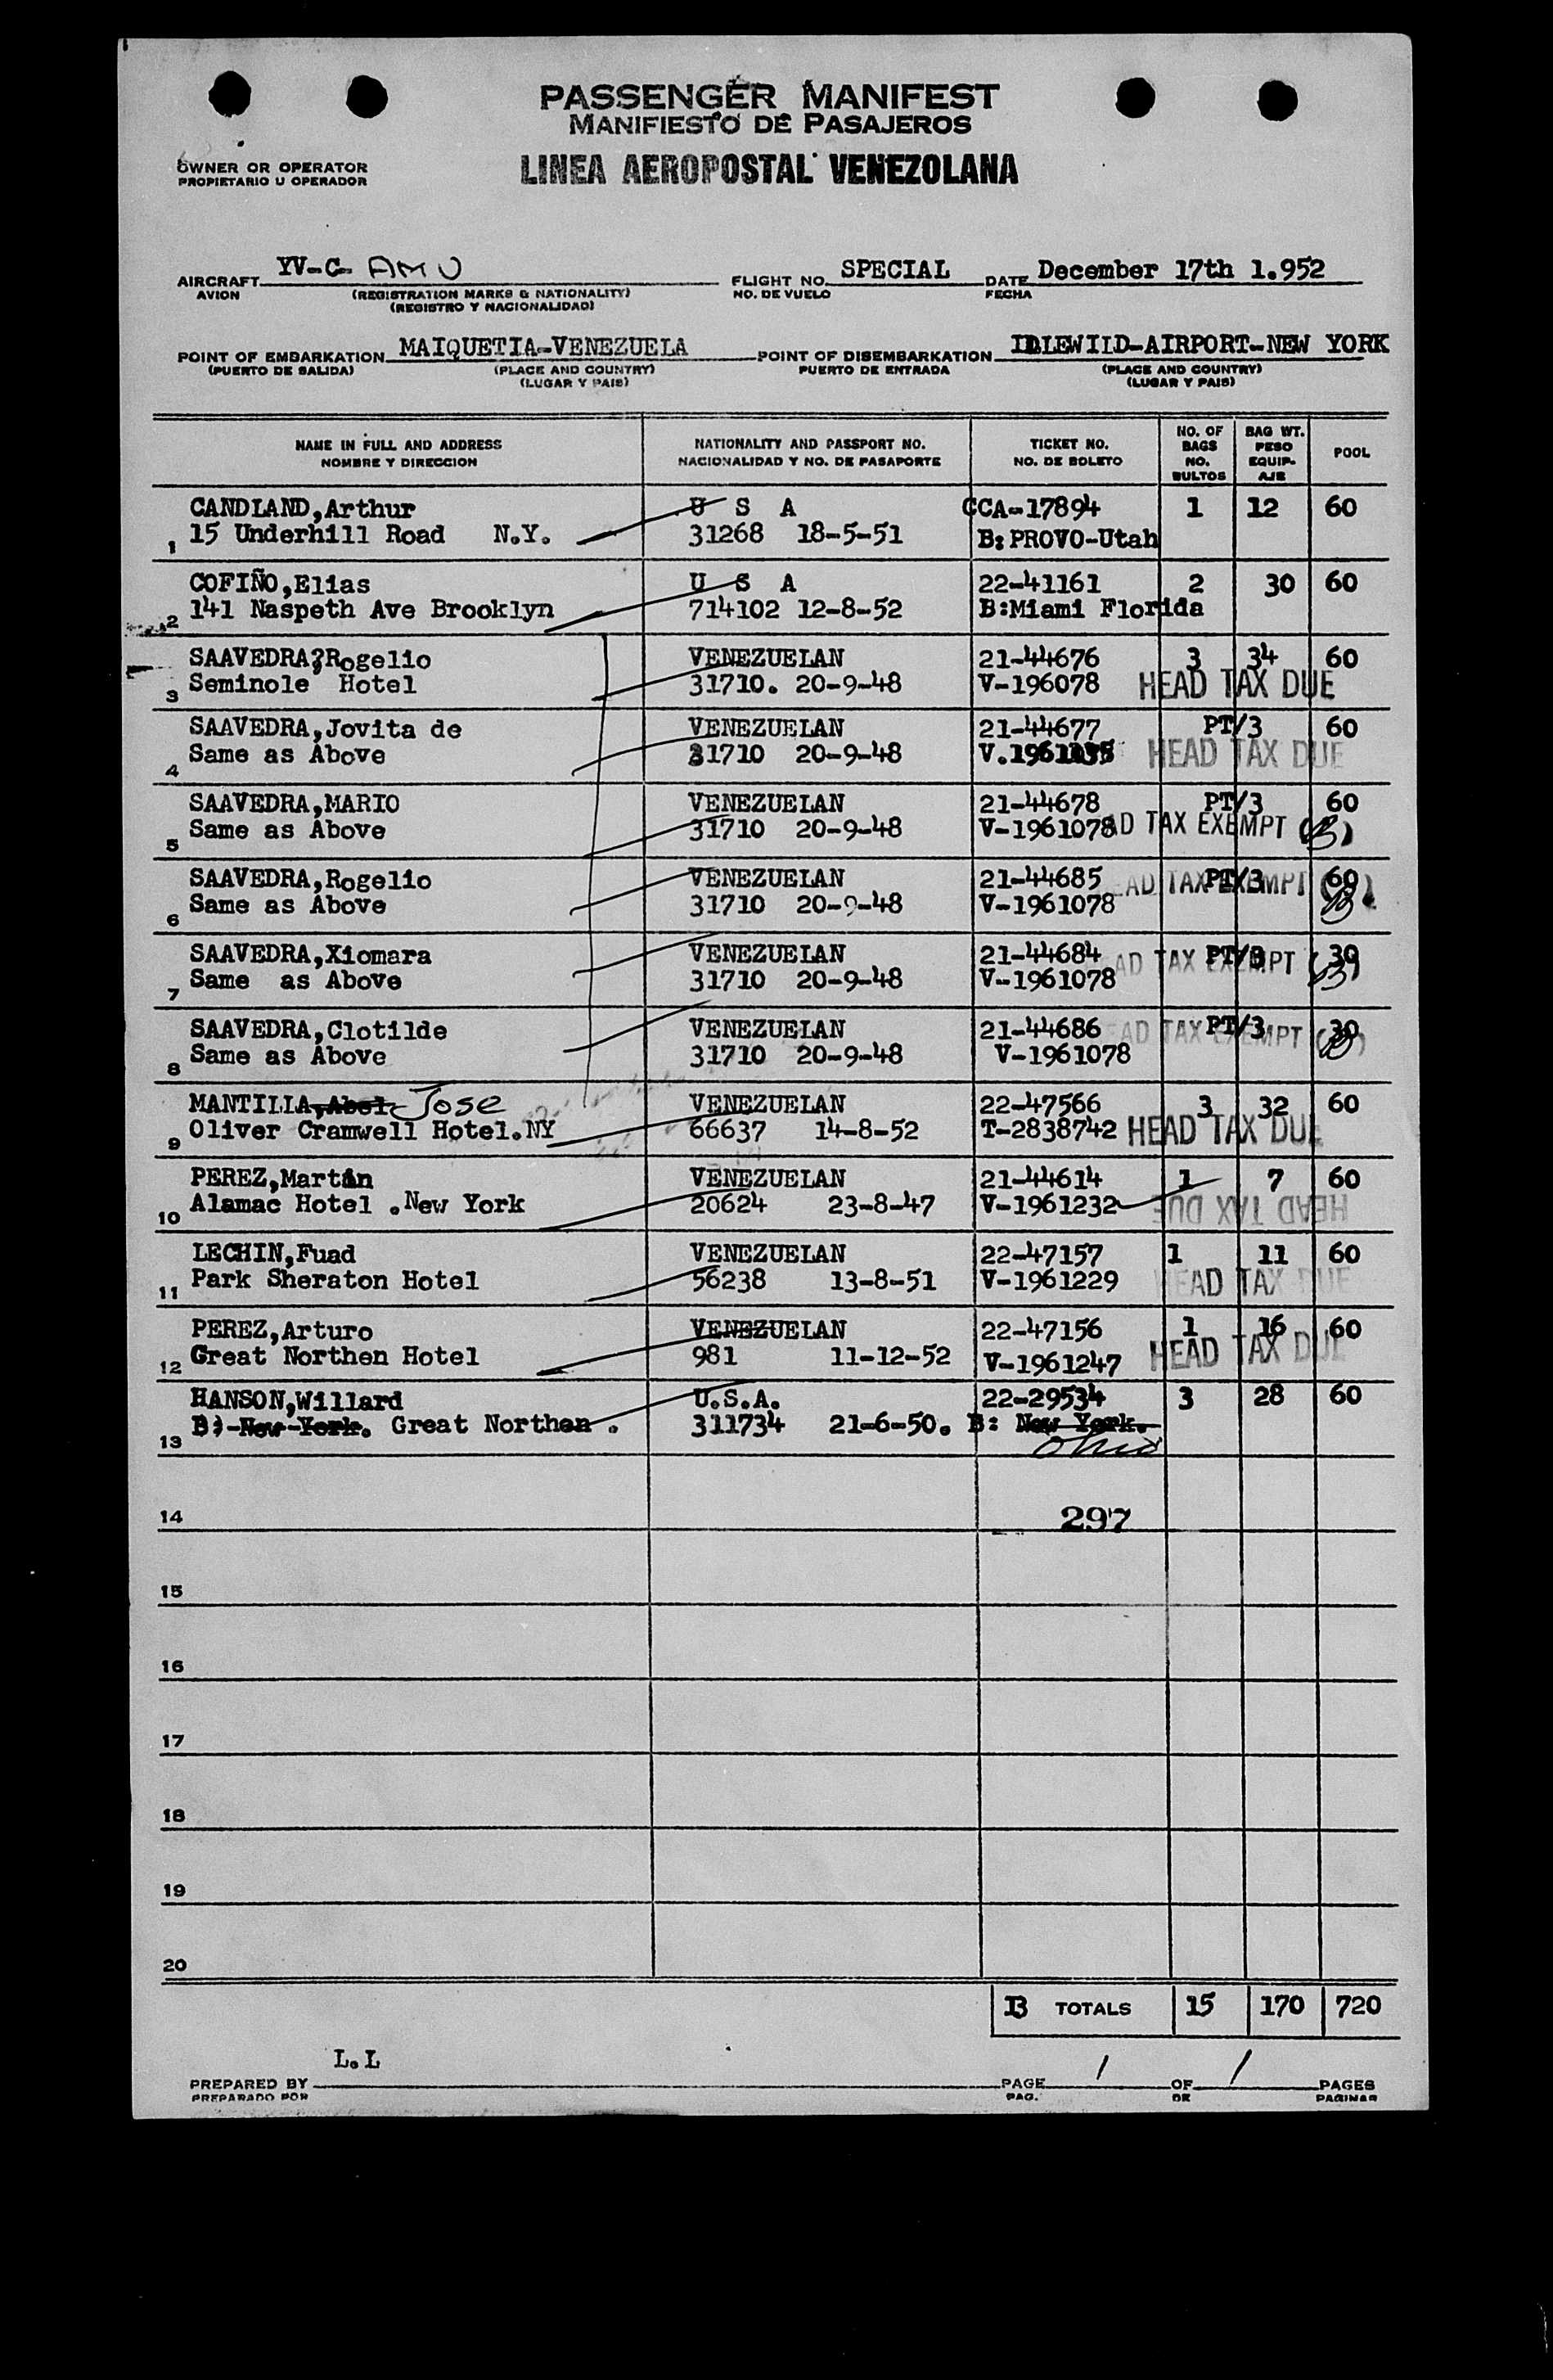 PASSENGER MANIFEST
MANIFIESTO DE PASAJEROS
OWNER OR OPERATOR
PROPIETARIO U OPERADOR
LINEA AEROPOSTAL VENEZOLANA
AIRCRAFT YV-C- AMU FLIGHT NO. SPECIAL DATE December 17th 1.952
AVION (REGISTRATION MARKS & NATIONALITY) NO. DE VUELO FECHA
(REGISTRO Y NACIONALIDAD)
POINT OF EMBARKATION MAIQUETIA-VENEZUELA POINT OF DISEMBARKATION IDLEWILD-AIRPORT-NEW YORK
(PUERTO DE SALIDA) (PLACE AND COUNTRY) PUERTO DE ENTRADA (PLACE AND COUNTRY)
(LUGAR Y PAIS) (LUGAR Y PAIS)
NAME IN FULL AND ADDRESS NATIONALITY AND PASSPORT NO. TICKET NO. NO. OF BAGS BAG WT. POOL
NOMBRE Y DIRECCION NACIONALIDAD Y NO. DE PASAPORTE NO. DE BOLETO NO. BULTOS PESO EQUIP-AJE
CANDLAND,Arthur U S A CCA-17894 1 12 60
1 15 Underhill Road N.Y. 31268 18-5-51 B:PROVO-Utah
COFIÑO,Elias U S A 22-41161 2 30 60
2 141 Naspeth Ave Brooklyn 714102 12-8-52 B:Miami Florida
SAAVEDRA?Rogelio VENEZUELAN 21-44676 3 34 60
3 Seminole Hotel 31710. 20-9-48 V-196078 HEAD TAX DUE
SAAVEDRA,Jovita de VENEZUELAN 21-44677 PT/3 60
4 Same as Above 31710 20-9-48 HEAD TAX DUE
SAAVEDRA,MARIO VENEZUELAN 21-44678 PT/3 60
5 Same as Above 31710 20-9-48 V-1961078 AD TAX EXEMPT
SAAVEDRA,Rogelio VENEZUELAN 21-44685 PT/3 60
6 Same as Above 31710 20-9-48 V-1961078 EAD TAX EXEMPT
SAAVEDRA,Xiomara VENEZUELAN 21-44684 PT/3 30
7 Same as Above 31710 20-9-48 V-1961078 EAD TAX EXEMPT
SAAVEDRA,Clotilde VENEZUELAN 21-44686 PT/3 30
8 Same as Above 31710 20-9-48 V-1961078 EAD TAX EXEMPT
MANTILLA,Abel Jose VENEZUELAN 22-47566 3 32 60
9 Oliver Cramwell Hotel.NY 66637 14-8-52 T-2838742 HEAD TAX DUE
PEREZ,Martin VENEZUELAN 21-44614 1 7 60
10 Alamac Hotel .New York 20624 23-8-47 V-1961232 HEAD TAX DUE
LECHIN,Fuad VENEZUELAN 22-47157 1 11 60
11 Park Sheraton Hotel 56238 13-8-51 V-1961229 HEAD TAX DUE
PEREZ,Arturo VENEZUELAN 22-47156 1 16 60
12 Great Northen Hotel 981 11-12-52 V-1961247 HEAD TAX DUE
HANSON,Willard U.S.A. 22-29534 3 28 60
13 B:-New-York. Great Northen . 311734 21-6-50. B: New York. Ohio
14 297
15
16
17
18
19
20
13 TOTALS 15 170 720
L.L
PREPARED BY PAGE 1 OF 1 PAGES
PREPARADO POR PAG. DE PAGINAS